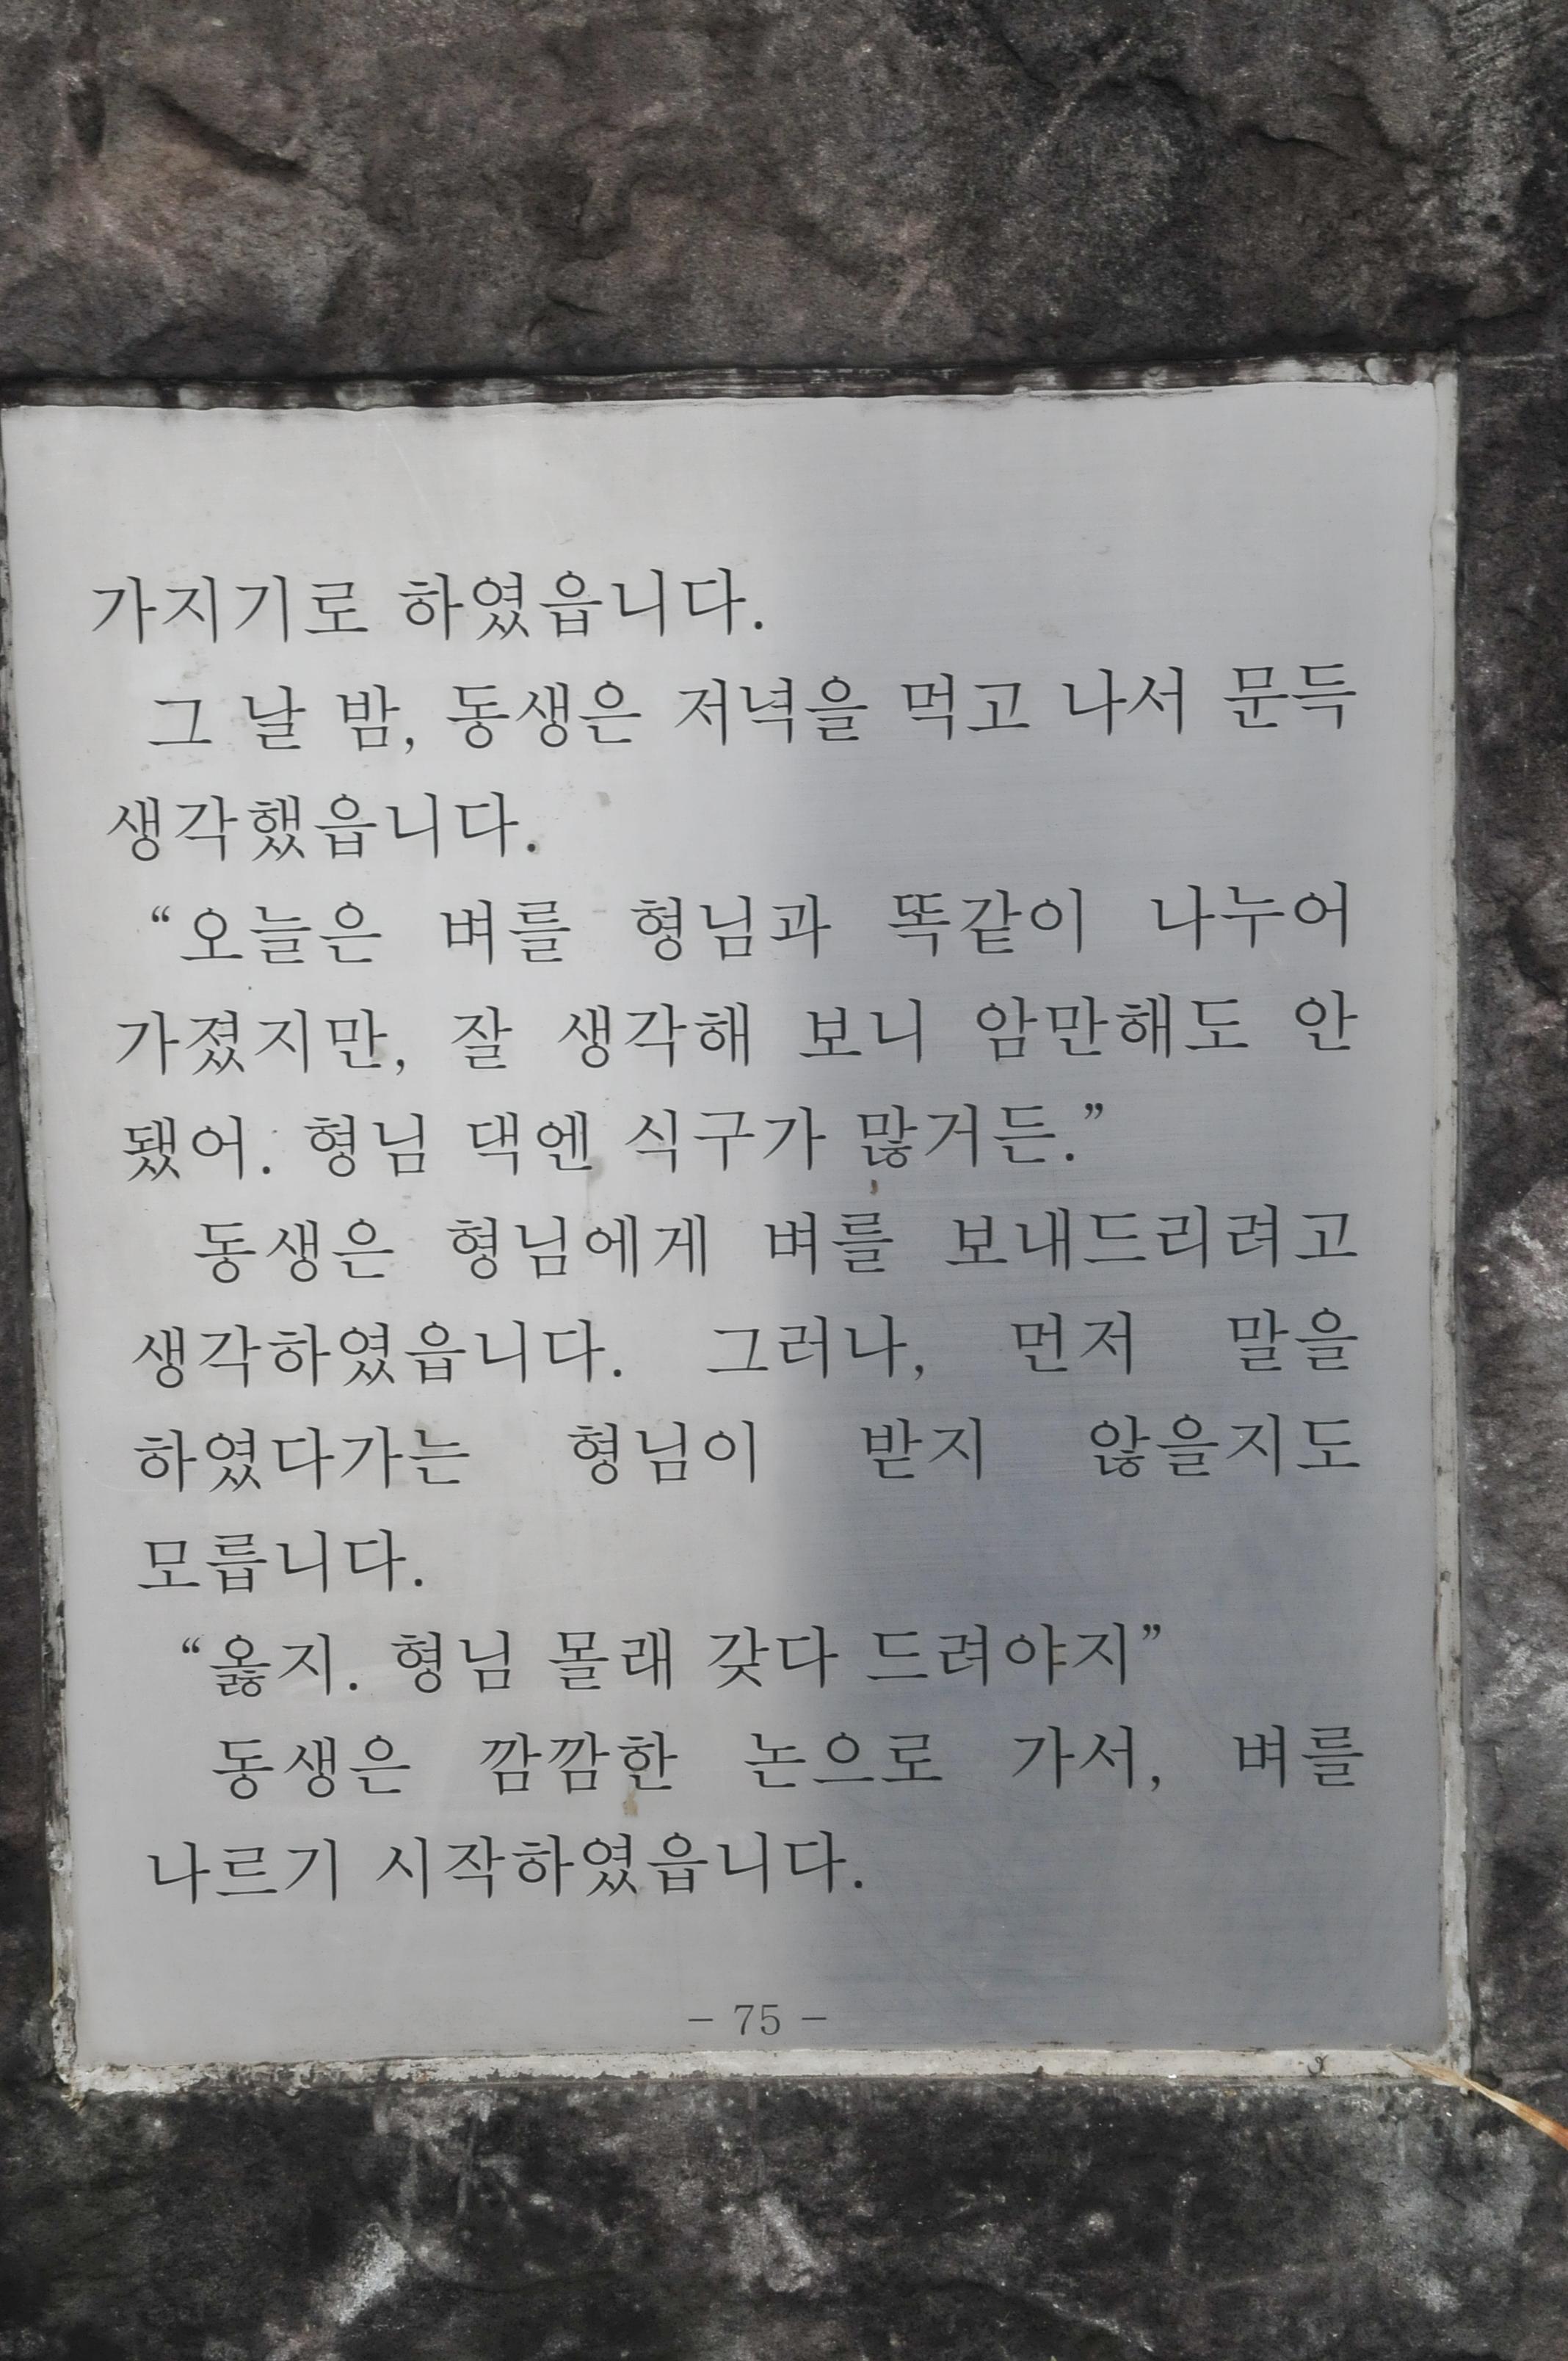 가지기로 하였읍니다.
그 날 밤, 동생은 저녁을 먹고 나서 문득
생각했읍니다.
“오늘은 벼를 형님과 똑같이 나누어
가졌지만, 잘 생각해 보니 암만해도 안
됐어. 형님 댁엔 식구가 많거든.”
동생은 형님에게 벼를 보내드리려고
생각하였읍니다. 그러나, 먼저 말을
하였다가는 형님이 받지 않을지도
모릅니다.
“옳지. 형님 몰래 갖다 드려야지”
동생은 깜깜한 논으로 가서, 벼를
나르기 시작하였읍니다.
- 75 -